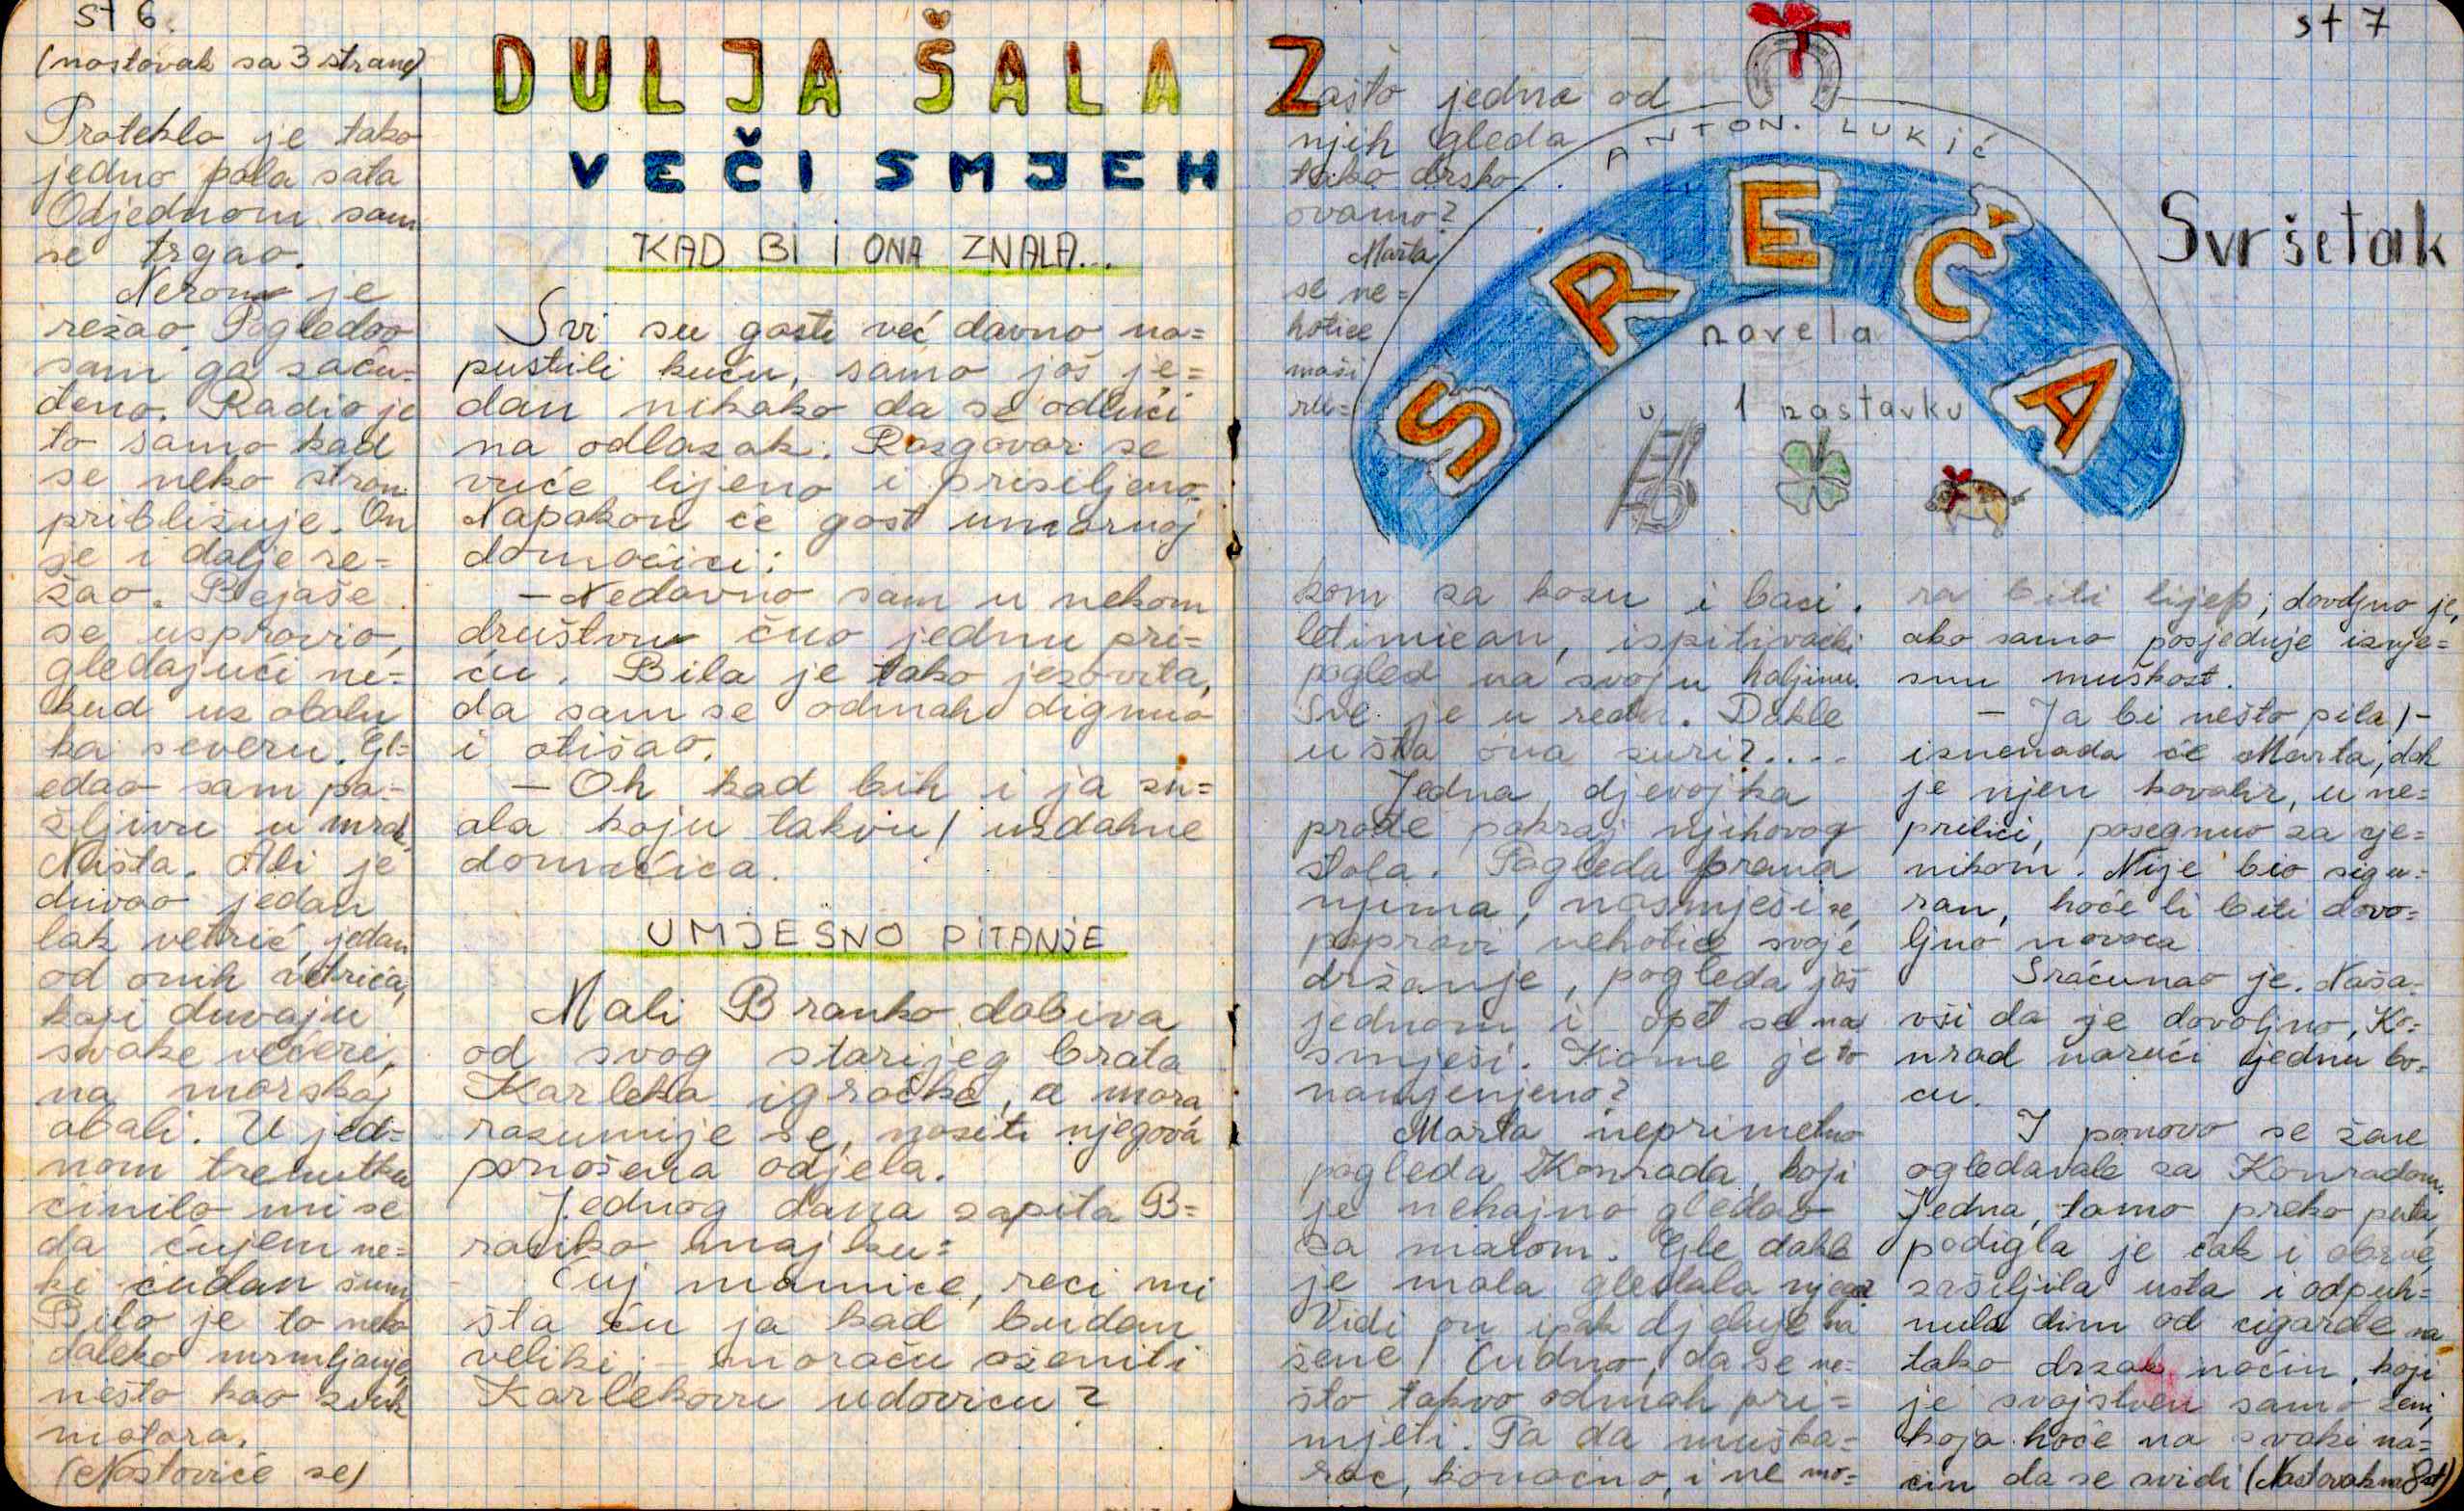 st 6.
(nastavak sa 3 strane)
Proteklo je tako
jedno pola sata
Odjednom sam
se trgao.
Neron je
režao. Pogledao
sam ga začu=
đeno. Radio je
to samo kad
se neko stran
približuje. On
je i dalje re=
žao. Bejaše
se uspravio,
gledajući ne=
kud uz obalu
ka severu. Gl=
edao sam pa=
žljivo u mrak
Ništa. Ali je
duvao jedan
lak vetrić, jedan
od onih vetrića,
koji duvaju
svake večeri,
na morskoj
obali. U jed=
nom trenutku
činilo mi se
da čujem ne=
ki čudan šum
Bilo je to neko
daleko mrmljanje,
nešto kao zvuk
motora.
(Nastaviće se)
DULJA ŠALA
VEČI SMJEH
KAD BI i ONA ZNALA...
Svi su gosti već davno na=
pustili kuću, samo još je=
dan nikako da se odluči
na odlazak. Razgovor se
vuče lijeno i prisiljeno.
Napokon će gost umornoj
domaćici:
– Nedavno sam u nekom
društvu čuo jednu pri=
ču. Bila je tako jezovita,
da sam se odmah dignuo
i otišao.
– Oh kad bih i ja zn=
ala koju takvu! uzdahne
domaćica.
UMJESNO PITANJE
Mali Branko dobiva
od svog starijeg brata
Karleka igračke, a mora
razumije se, nositi njegova
ponošena odjela.
Jednog dana zapita B=
ranko majku:
Čuj mamice, reci mi
šta ću ja kad budan
veliki, – moraću oženiti
Karlekovu udovicu?
st 7
Zašto jedna od
njih gleda
tako drsko
ovamo?
Marta
se ne=
hotice
maši
ru=
ANTON. LUKIĆ
SREĆA
novela
u 1 nastavku
Svršetak
kom za kosu i baci
letimičan, ispitivački
pogled na svoju haljinu.
Sve je u redu. Dakle
u šta ona zuri?....
Jedna djevojka
prođe pokraj njihovog
stola. Pogleda prama
njima, nasmješi se,
popravi nehotice svoje
držanje, pogleda još
jednom i opet se na
smješi. Kome je to
namjenjeno?
Marta neprimetno
pogleda Konrada, koji
je nehajno gledao
za malom. Gle dakle
je mala gledala njega?
Vidi on ipak djeluje na
žene! Čudno, da se ne=
što takvo odmah pri=
mjeti. Pa da muška=
rac, konačno, i ne mo=
ra biti lijep; dovoljno je,
ako samo posjeduje iznje=
snu muškost.
– Ja bi nešto pila! –
iznenada će Marta, dok
je njen kovalir, u ne=
prilici, posegnuo za cje=
nikom. Nije bio sigu=
ran, hoće li biti dovo=
ljno novaca
Sračunao je. Naša=
vši da je dovoljno, Ko=
nrad naruči jednu bo=
cu.
I ponovo se žene
ogledavale za Konradom.
Jedna, tamo preko puta,
podigla je čak i obrve,
zašiljila usta i odpuh=
nula dim od cigarete na
tako drzak način, koji
je svojstven samo ženi,
koja hoće na svaki na=
čin da se svidi (Nastavak na 8 st)